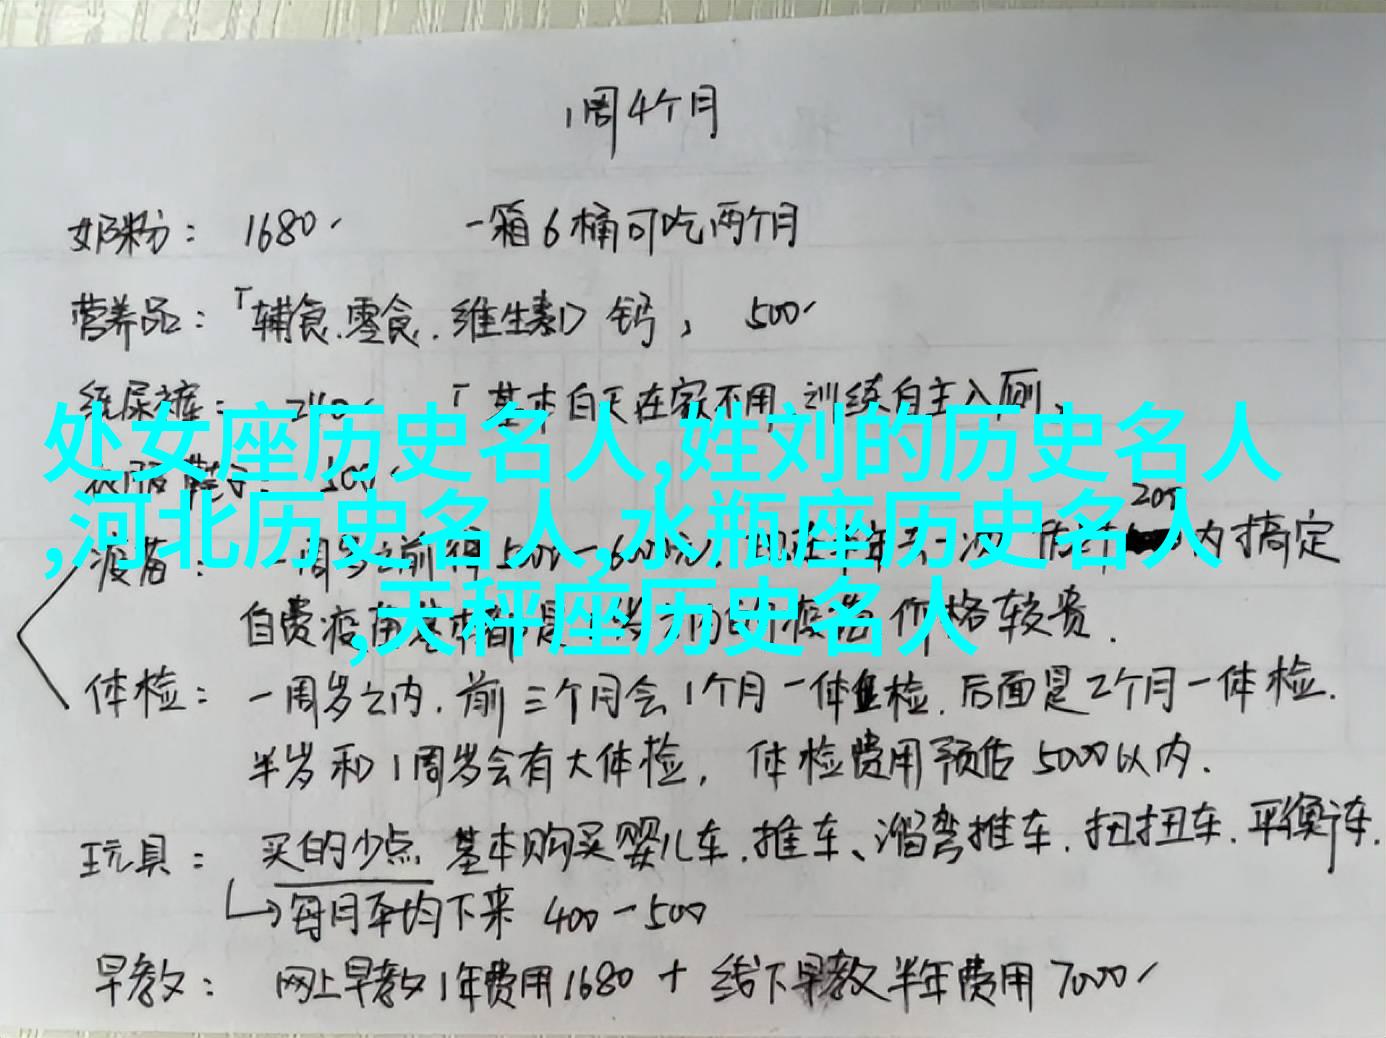 1周4个月
奶粉： 1680 一箱6桶可吃两个月
营养品：「辅食.零食.维生素D 钙， 500
纸尿裤： 「基本白天在家不用,训练自主入厕、
处女座历史名人,姓刘的历史名人
,河北历史名人,水瓶座历史名人
,天秤座历史名人
疫苗： 一周岁之前 内搞定
自费疫苗基本都是 价格较贵.
体检： 一周岁之内.前三个月会1个月一体检.后面是2个月一体检.
半岁和1周岁会有大体检， 体检费用预估5000以内.
玩具： 买的少点 基本购买婴儿车.推车、溜弯推车.扭扭车.平衡车.
每月平均下来 400-500
早教： 网上早教1年费用1680 + 线下早教半年费用7000